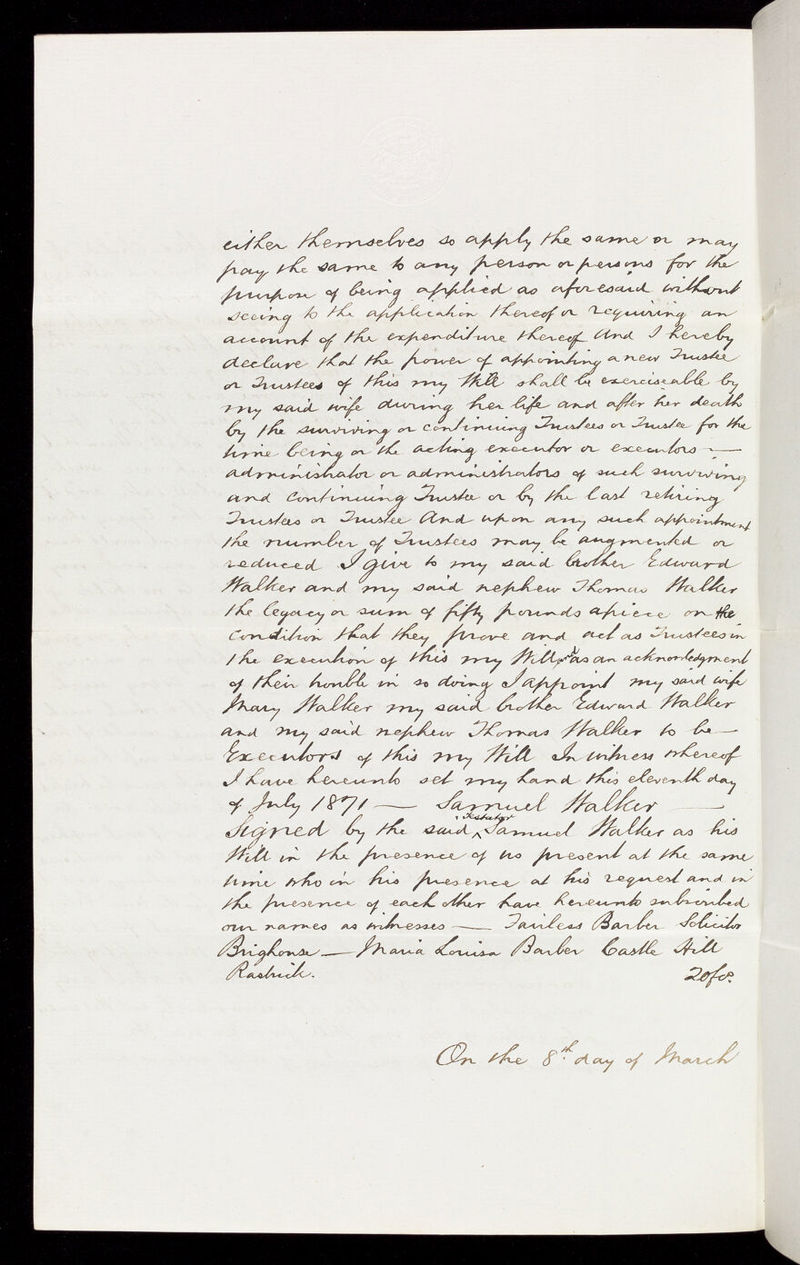 either themselves so apply the same or may
pay the same to any person or persons for the
purpose of being applied as aforesaid without
seeing to the application thereof or requiring an
account of the expenditure thereof And I hereby
declare that the power of appointing a new Trustee
or Trustees of this my Will shall be exerciseable by
my said wife during her life and after her death
by the surviving or continuing Trustees or Trustee for the
time being or the acting executor or executors —
administrator or administrators of such surviving
and continuing Trustee or by the last retiring
Trustees or Trustee And upon any such appointment
the number of Trustees may be augmented or
reduced I give to my said brother Edward
Walker and my said nephew Thomas Walker
the legacy or sum of fifty pounds apiece on the
condition that they prove and act as Trustees in
the execution of this my Will as an acknowledgment
of their trouble in so doing I appoint my said wife
Mary Walker my said brother Edward Walker
and my said nephew Thomas Walker to be —
Executors of this my Will In witness whereof
I have hereunto set my hand this eleventh day
of July 1871 — Samuel Walker —
Signed by the said ^testator Samuel Walker as his
Will in the presence of us present at the same
time who in his presence at his request and in
the presence of each other have hereunto subscribed
our names as witnesses — Fairless Barber Solicitor
Brighouse — Maria Louisa Barber Castle Hill
Rastrick. 20fos.
On the 8th day of March